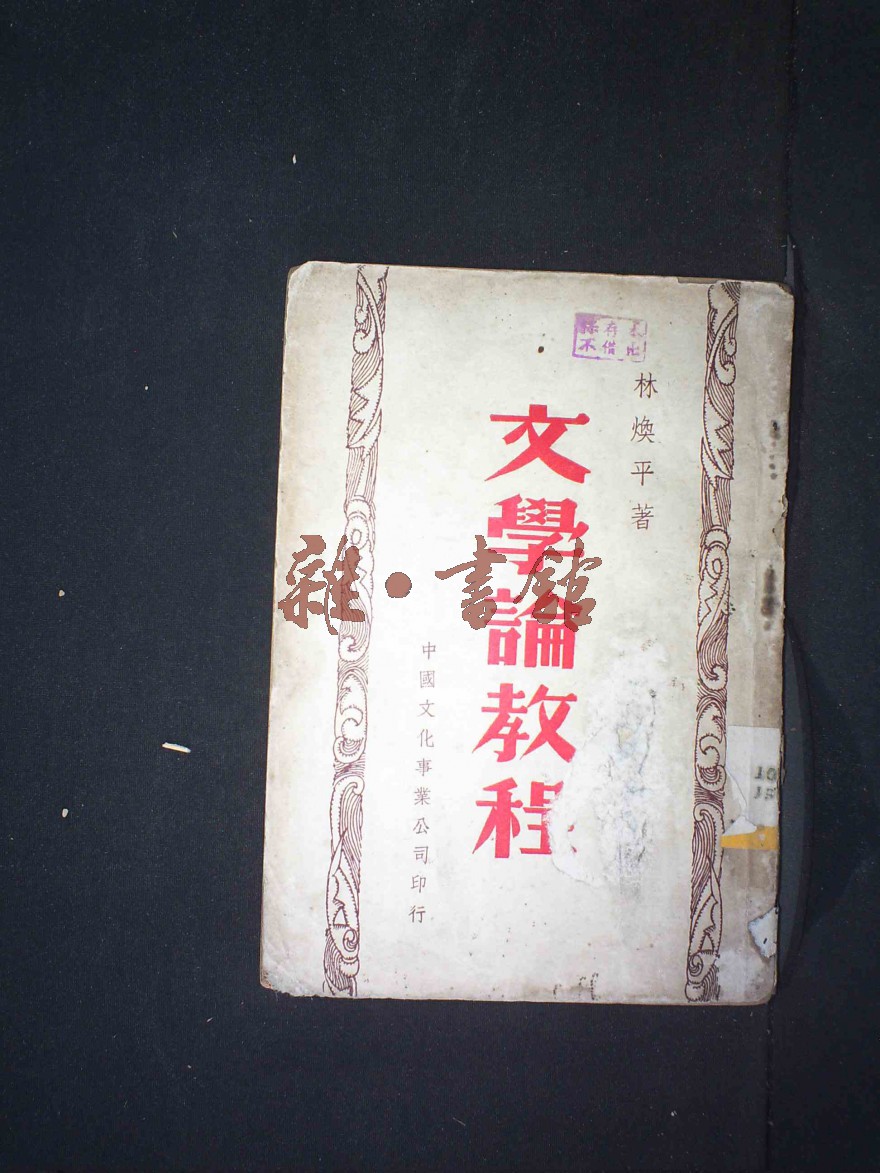 林煥平著
文學論教程
中國文化事業公司印行
雜·書館
存
不借出
10